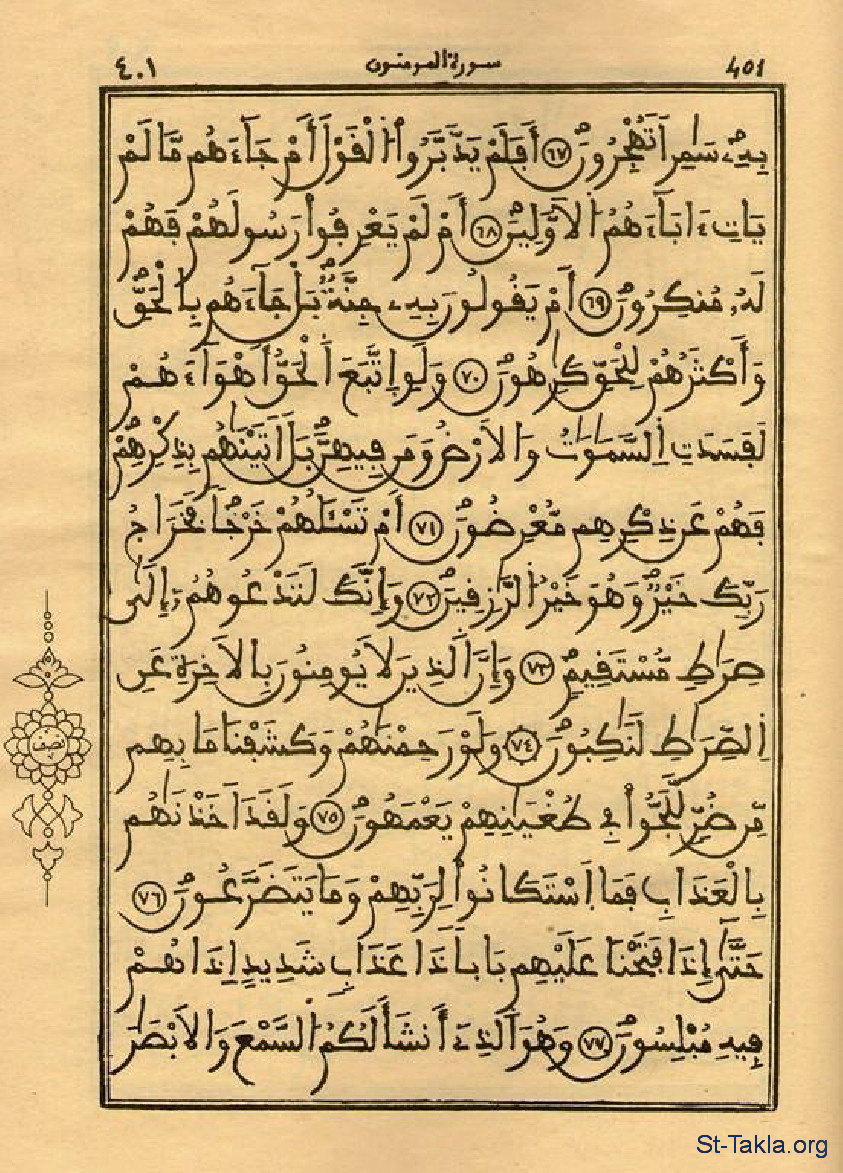 401 سورة المومنون ٤٠١
بِهِۦ سَٰمِراً تَهْجُرُونَ ٦٧ أَفَلَمْ يَدَّبَّرُوا۟ اُ۬لْقَوْلَ أَمْ جَآءَهُم مَّا لَمْ
يَاتِ ءَابَآءَهُمُ اُ۬لَاوَّلِينَ ٦٨ أَمْ لَمْ يَعْرِفُوا۟ رَسُولَهُمْ فَهُمْ
لَهُۥ مُنكِرُونَ ٦٩ أَمْ يَقُولُونَ بِهِۦ جِنَّةُۢ بَلْ جَآءَهُم بِالْحَقِّ
وَأَكْثَرُهُمْ لِلْحَقِّ كَٰرِهُونَ ٧٠ وَلَوِ اِ۪تَّبَعَ اَ۬لْحَقُّ أَهْوَآءَهُمْ
لَفَسَدَتِ اِ۬لسَّمَٰوَٰتُ وَالَارْضُ وَمَن فِيهِنَّ بَلَ اَتَيْنَٰهُم بِذِكْرِهِمْ
فَهُمْ عَن ذِكْرِهِم مُّعْرِضُونَ ٧١ أَمْ تَسْـَٔلُهُمْ خَرْجاً فَخَرَاجُ
رَبِّكَ خَيْرٌ وَهُوَ خَيْرُ اُ۬لرَّٰزِقِينَ ٧٢ وَإِنَّكَ لَتَدْعُوهُمُۥٓ إِلَىٰ
صِرَٰطٍ مُّسْتَقِيمٍ ٧٣ وَإِنَّ اَ۬لذِينَ لَا يُومِنُونَ بِالَاخِرَةِ عَنِ
اِ۬لصِّرَٰطِ لَنَٰكِبُونَ ٧٤ وَلَوْ رَحِمْنَٰهُمْ وَكَشَفْنَا مَا بِهِم
مِّن ضُرٍّ لَّلَجُّوا۟ فِے طُغْيَٰنِهِمْ يَعْمَهُونَ ٧٥ وَلَقَدَ اَخَذْنَٰهُم
بِالْعَذَابِ فَمَا اَ۪سْتَكَانُوا۟ لِرَبِّهِمْ وَمَا يَتَضَرَّعُونَ ٧٦
حَتَّىٰٓ إِذَا فَتَحْنَا عَلَيْهِم بَاباً ذَا عَذَابٍ شَدِيدٍ اِذَا هُمْ
فِيهِ مُبْلِسُونَ ٧٧ وَهُوَ اَ۬لذِےٓ أَنشَأَ لَكُمُ اُ۬لسَّمْعَ وَالَابْصَٰرَ
نصف
St-Takla.org